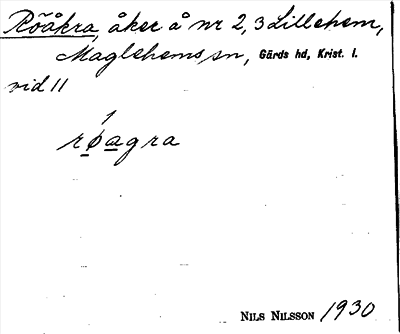 Röåkra, åker å nr 2, 3 Lillehem,
Maglehems sn, Gärds hd, Krist. l.
vid 11
1
røagra
NILS NILSSON 1930